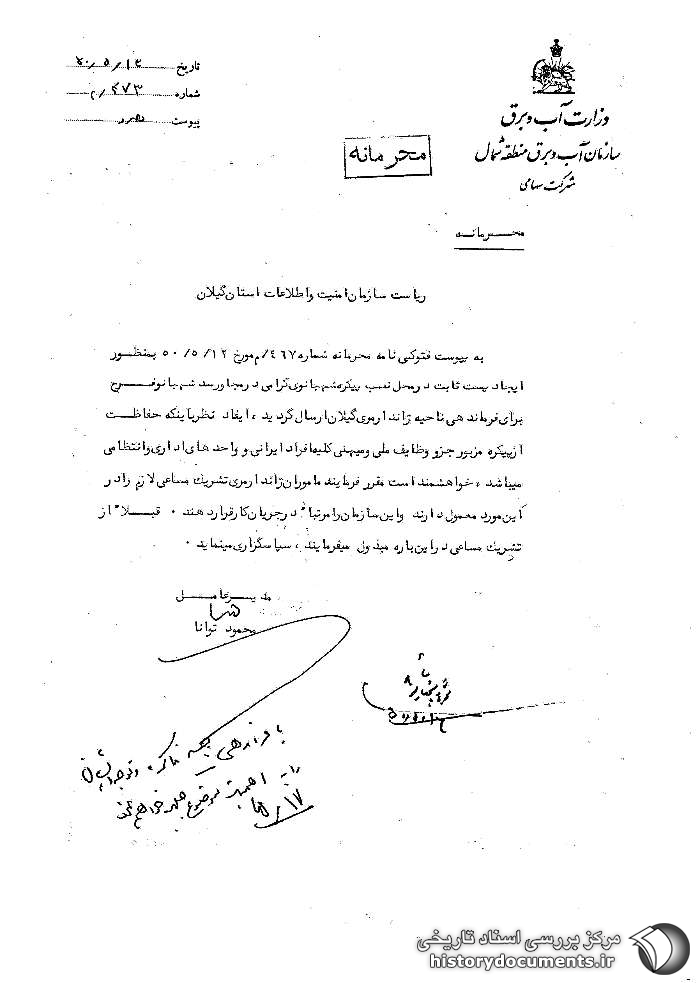 وزارت آب و برق
سازمان آب و برق منطقه شمال
شرکت سهامی
تاریخ ۵۰/۵/۱۲
شماره ۴۷۳/م
پیوست دارد
محرمانه
محرمانه
ریاست سازمان امنیت و اطلاعات استان گیلان
به پیوست فتوکپی نامه محرمانه شماره ۴۶۷/م مورخ ۵۰/۵/۱۲ بمنظور
ایجاد پست ثابت در محل نصب پیکره شهبانوی گرامی در مجاور سد شهبانو فرح
برای فرماندهی ناحیه ژاندارمری گیلان ارسال گردید ، ایفاد نظر باینکه حفاظت
از پیکره مزبور جزو وظایف ملی و میهنی کلیه افراد ایرانی و واحدهای اداری و انتظامی
میباشد ، خواهشمند است مقرر فرمایند ماموران ژاندارمری تشریک مساعی لازم را در
این مورد معمول دارند و این سازمان را مرتباً در جریان کار قرار دهند ۰ قبلاً از
تشریک مساعی در این باره مبذول میفرمایند ، سپاسگزاری مینماید ۰
مدیر عامل
محمود توانا
با فرماندهی
را به اهمیت موضوع جلب خواهم
۵/۱۷
مرکز بررسی اسناد تاریخی
historydocuments.ir